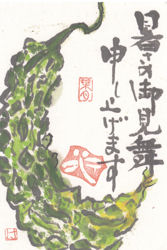 暑さ御見舞
申し上げます